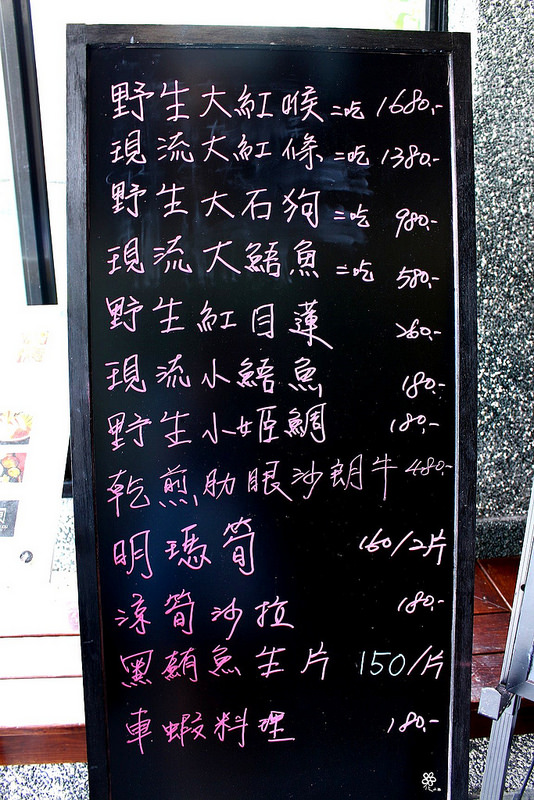 野生大紅喉二吃 1680.-
現流大紅條二吃 1380.-
野生大石狗二吃 980.-
現流大鱔魚二吃 580.-
野生紅目蓮 260.-
現流小鱔魚 180.-
野生小姬鯛 180.-
乾煎肋眼沙朗牛 480.-
明瑪筍 160/2片
涼筍沙拉 180.-
黑鮪魚生片 150/片
車蝦料理 180.-